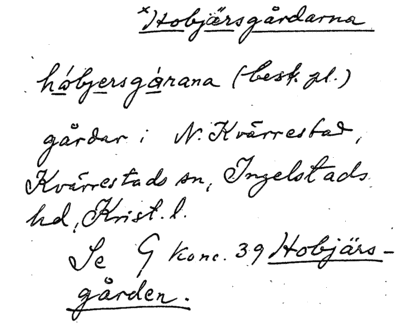 ×Hobjärsgårdarna
hábjersgárana (best. pl.)
gårdar i N. Kvärrestad,
Kvärrestads sn, Ingelstads
hd, Krist. l.
Se G konc. 39 Hobjärs-
gården.